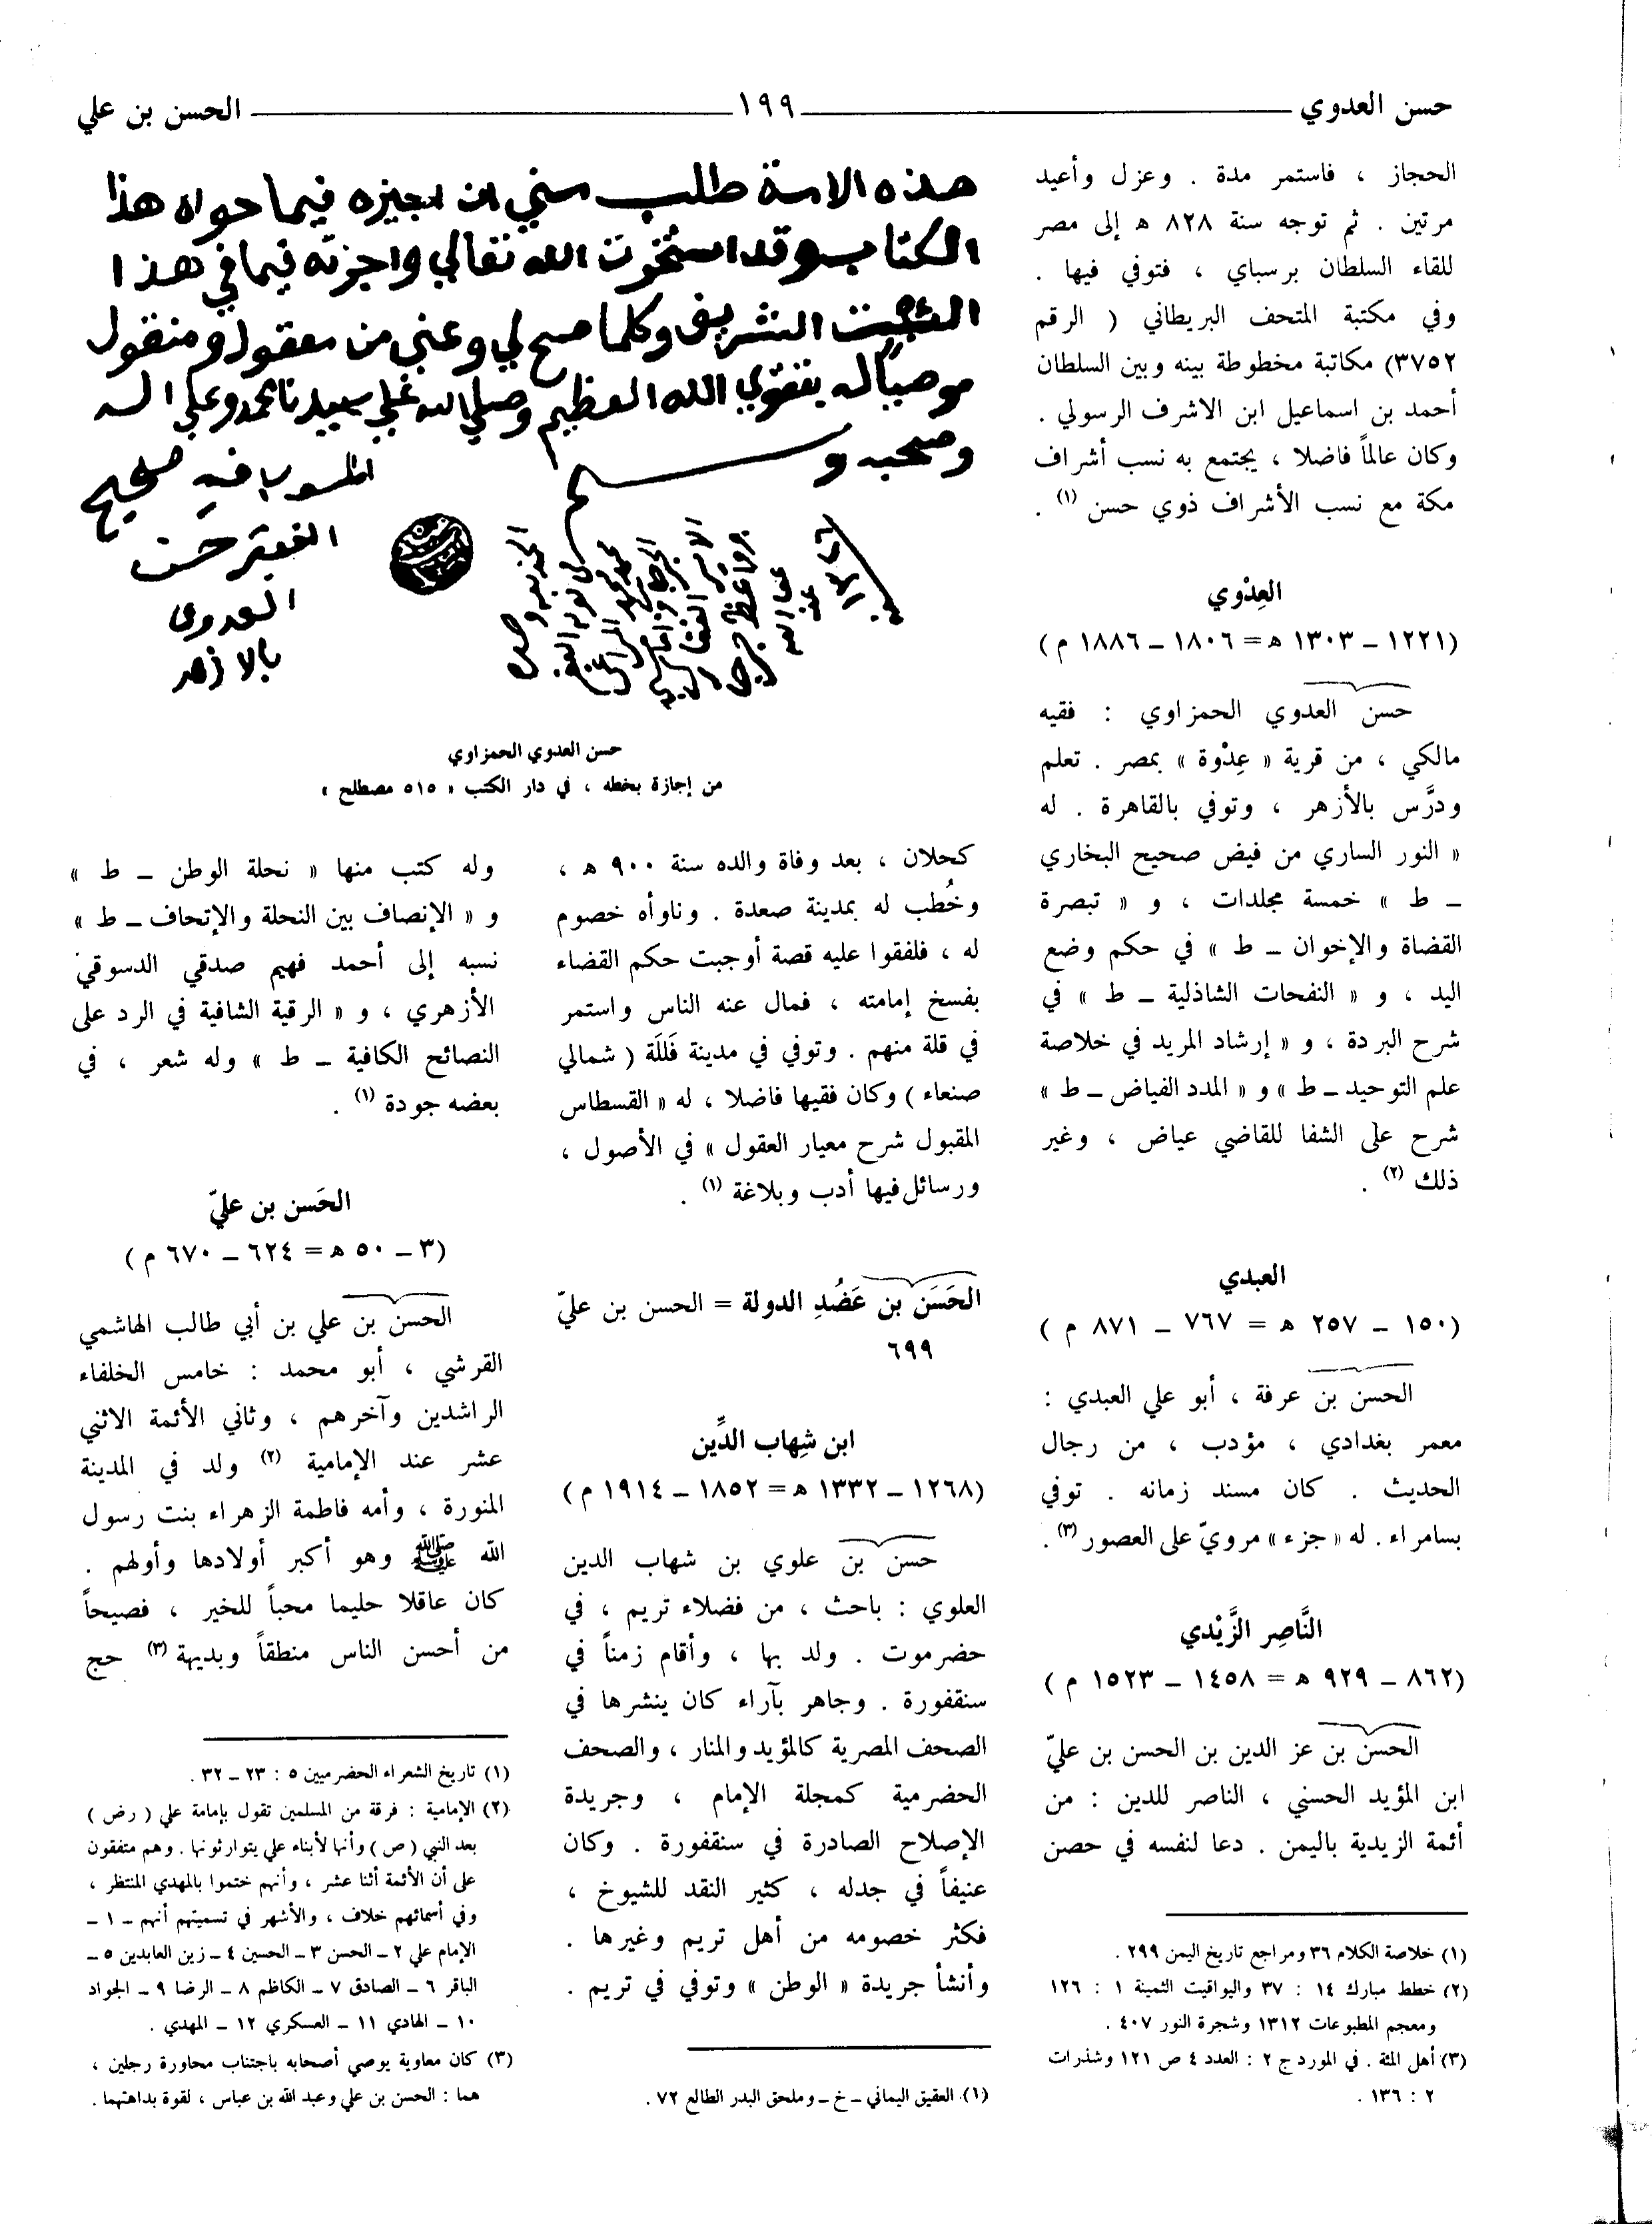 حسن العدوي ١٩٩ الحسن بن علي
الحجاز ، فاستمر مدة . وعزل وأعيد
مرتين . ثم توجه سنة ٨٢٨ ه إلى مصر
للقاء السلطان برسباي ، فتوفي فيها .
وفي مكتبة المتحف البريطاني ( الرقم
٣٧٥٢) مكاتبة مخطوطة بينه وبين السلطان
أحمد بن اسماعيل ابن الاشرف الرسولي .
وكان عالماً فاضلا ، يجتمع به نسب أشراف
مكة مع نسب الأشراف ذوي حسن (١) .
العِدْوي
(١٢٢١ – ١٣٠٣ ه = ١٨٠٦ – ١٨٨٦ م )
حسن العدوي الحمزاوي : فقيه
مالكي ، من قرية « عِدْوة » بمصر . تعلم
ودرَّس بالأزهر ، وتوفي بالقاهرة . له
« النور الساري من فيض صحيح البخاري
– ط » خمسة مجلدات ، و « تبصرة
القضاة والإخوان – ط » في حكم وضع
اليد ، و « النفحات الشاذلية – ط » في
شرح البردة ، و « إرشاد المريد في خلاصة
علم التوحيد – ط » و « المدد الفياض – ط »
شرح على الشفا للقاضي عياض ، وغير
ذلك (٢) .
العبدي
(١٥٠ – ٢٥٧ ه = ٧٦٧ – ٨٧١ م )
الحسن بن عرفة ، أبو علي العبدي :
معمر بغدادي ، مؤدب ، من رجال
الحديث . كان مسند زمانه . توفي
بسامراء . له « جزء » مرويّ على العصور (٣) .
النَّاصِر الزَّيْدي
(٨٦٢ – ٩٢٩ ه = ١٤٥٨ – ١٥٢٣ م )
الحسن بن عز الدين بن الحسن بن عليّ
ابن المؤيد الحسني ، الناصر للدين : من
أئمة الزيدية باليمن . دعا لنفسه في حصن
(١) خلاصة الكلام ٣٦ ومراجع تاريخ اليمن ٢٩٩ .
(٢) خطط مبارك ١٤ : ٣٧ واليواقيت الثمينة ١ : ١٢٦
ومعجم المطبوعات ١٣١٢ وشجرة النور ٤٠٧ .
(٣) أهل المئة . في المورد ج ٢ : العدد ٤ ص ١٢١ وشذرات
٢ : ١٣٦ .
هذه الامة طلب مني ان اجيزه فيما حواه هذا
الكتاب وقد استخرت الله تعالي واجزته فيما في هذا
الثبت الشريف وكلما صح لي وعني من معقول ومنقول
موصياً له بتقوي الله العظيم وصلي الله علي سيدنا محمد وعلي اله
وصحبه وسلم
صحيح
الفقير حسن
العدوي
بالازهر
حسن العدوي الحمزاوي
من إجازة بخطه ، في دار الكتب « ٥١٥ مصطلح »
كحلان ، بعد وفاة والده سنة ٩٠٠ ه ،
وخُطب له بمدينة صعدة . وناوأه خصوم
له ، فلفقوا عليه قصة أوجبت حكم القضاء
بفسخ إمامته ، فمال عنه الناس واستمر
في قلة منهم . وتوفي في مدينة فَلَلَة ( شمالي
صنعاء ) وكان فقيها فاضلا ، له « القسطاس
المقبول شرح معيار العقول » في الأصول ،
ورسائل فيها أدب وبلاغة (١) .
الحَسَن بن عَضُدِ الدولة = الحسن بن عليّ
٦٩٩
ابن شِهاب الدِّين
(١٢٦٨ – ١٣٣٢ ه = ١٨٥٢ – ١٩١٤ م )
حسن بن علوي بن شهاب الدين
العلوي : باحث ، من فضلاء تريم ، في
حضرموت . ولد بها ، وأقام زمناً في
سنقفورة . وجاهر بآراء كان ينشرها في
الصحف المصرية كالمؤيد والمنار ، والصحف
الحضرمية كمجلة الإمام ، وجريدة
الإصلاح الصادرة في سنقفورة . وكان
عنيفاً في جدله ، كثير النقد للشيوخ ،
فكثر خصومه من أهل تريم وغيرها .
وأنشأ جريدة « الوطن » وتوفي في تريم .
(١) العقيق اليماني – خ – وملحق البدر الطالع ٧٢ .
وله كتب منها « نحلة الوطن – ط »
و « الإنصاف بين النحلة والإتحاف – ط »
نسبه إلى أحمد فهيم صدقي الدسوقي
الأزهري ، و « الرقية الشافية في الرد على
النصائح الكافية – ط » وله شعر ، في
بعضه جودة (١) .
الحَسن بن عليّ
(٣ – ٥٠ ه = ٦٢٤ – ٦٧٠ م )
الحسن بن علي بن أبي طالب الهاشمي
القرشي ، أبو محمد : خامس الخلفاء
الراشدين وآخرهم ، وثاني الأئمة الاثني
عشر عند الإمامية (٢) ولد في المدينة
المنورة ، وأمه فاطمة الزهراء بنت رسول
الله ﷺ وهو أكبر أولادها وأولهم .
كان عاقلا حليما محباً للخير ، فصيحاً
من أحسن الناس منطقاً وبديهة (٣) حج
(١) تاريخ الشعراء الحضرميين ٥ : ٢٣ – ٣٢ .
(٢) الإمامية : فرقة من المسلمين تقول بإمامة علي ( رض )
بعد النبي ( ص ) وأنها لأبناء علي يتوارثونها . وهم متفقون
على أن الأئمة أثنا عشر ، وأنهم ختموا بالمهدي المنتظر ،
وفي أسمائهم خلاف ، والأشهر في تسميتهم أنهم – ١ –
الإمام علي ٢ – الحسن ٣ – الحسين ٤ – زين العابدين ٥ –
الباقر ٦ – الصادق ٧ – الكاظم ٨ – الرضا ٩ – الجواد
١٠ – الهادي ١١ – العسكري ١٢ – المهدي .
(٣) كان معاوية يوصي أصحابه باجتناب محاورة رجلين ،
هما : الحسن بن علي وعبد الله بن عباس ، لقوة بداهتهما .